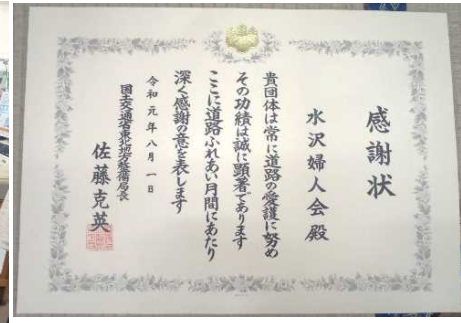 感謝状
水沢婦人会殿
貴団体は常に道路の愛護に努め
その功績は誠に顕著であります
ここに道路ふれあい月間にあたり
深く感謝の意を表します
令和元年八月一日
国土交通省東北地方整備局長
佐藤克英